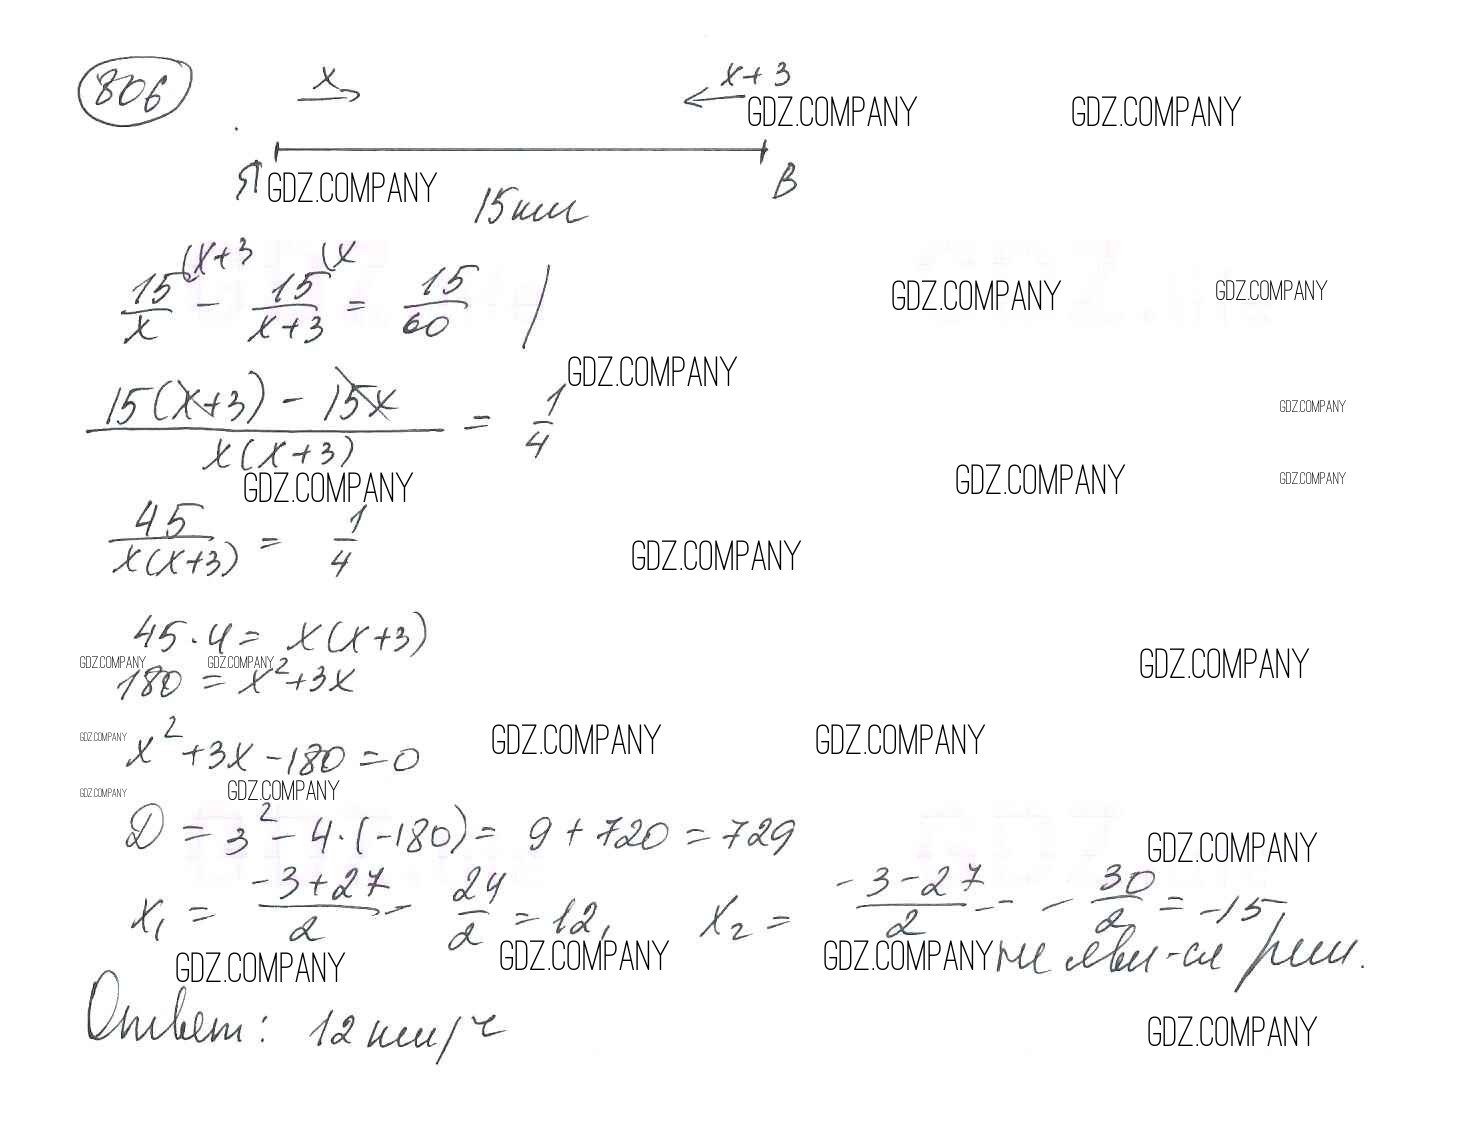 806
x
x+3
GDZ.COMPANY GDZ.COMPANY
A GDZ.COMPANY 15 км B
15/x (x+3 - 15/(x+3) (x = 15/60 |
GDZ.COMPANY GDZ.COMPANY
GDZ.COMPANY
(15(x+3) - 15x)/(x(x+3)) = 1/4
GDZ.COMPANY
GDZ.COMPANY GDZ.COMPANY GDZ.COMPANY
45/(x(x+3)) = 1/4
GDZ.COMPANY
45·4 = x(x+3)
GDZ.COMPANY GDZ.COMPANY GDZ.COMPANY
180 = x²+3x
GDZ.COMPANY GDZ.COMPANY GDZ.COMPANY
x²+3x-180=0
GDZ.COMPANY GDZ.COMPANY
D = 3² - 4·(-180) = 9 + 720 = 729
GDZ.COMPANY
x₁ = (-3+27)/2 = 24/2 = 12, x₂ = (-3-27)/2 = -30/2 = -15
GDZ.COMPANY GDZ.COMPANY GDZ.COMPANY не явл-ся реш.
Ответ: 12 км/ч
GDZ.COMPANY